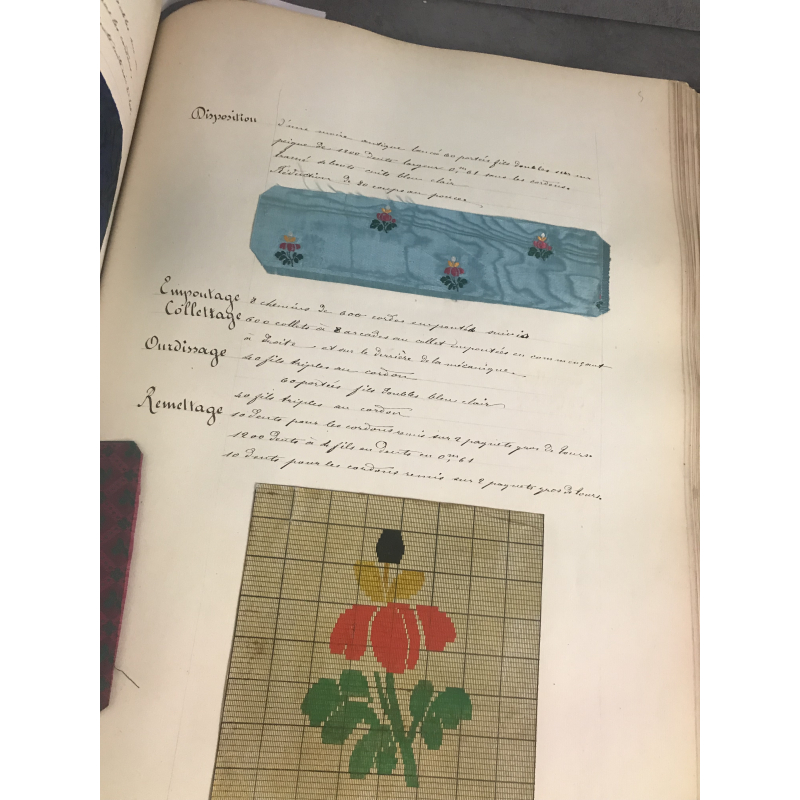 5
Disposition d'une moire antique lancé 60 portées fils doubles sur un
peigne de 1200 dents largeur 0,m 61 sans les cordons
tramé 4 bouts cuits bleu clair
Réduction de 80 coups au pouce
Empoutage 2 chemins de 600 cordes empoutés suivis
Colletage 600 collets à 2 arcades au collet empoutées en commençant
à droite et sur le derrière de la mécanique
Ourdissage 40 fils triples au cordon
60 portées fils doubles bleu clair
40 fils triples au cordon
Remettage 10 dents pour les cordons remis sur 2 paquets gros de tours
1200 dents à 4 fils en dents en 0,m 61
10 dents pour les cordons remis sur 2 paquets gros de tours.